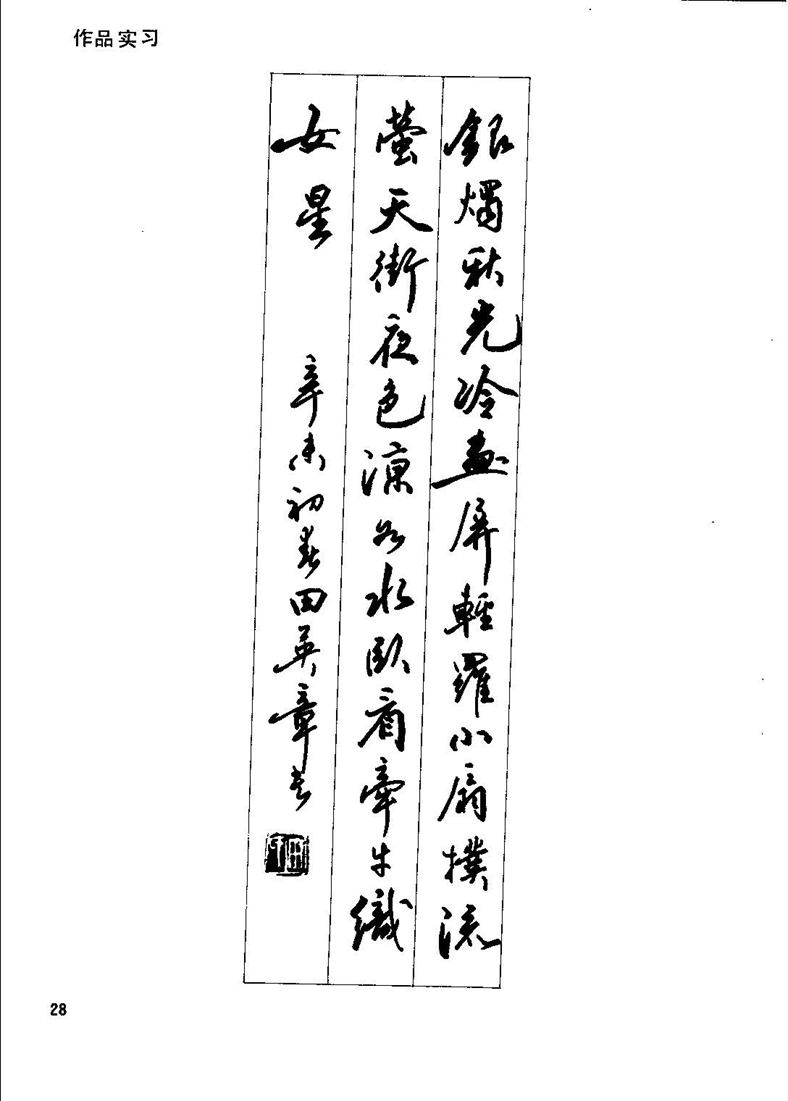 作品实习
銀燭秋光冷畫屏輕羅小扇撲流
螢天街夜色凉如水臥看牽牛織
女星 辛未初春田英章书
28